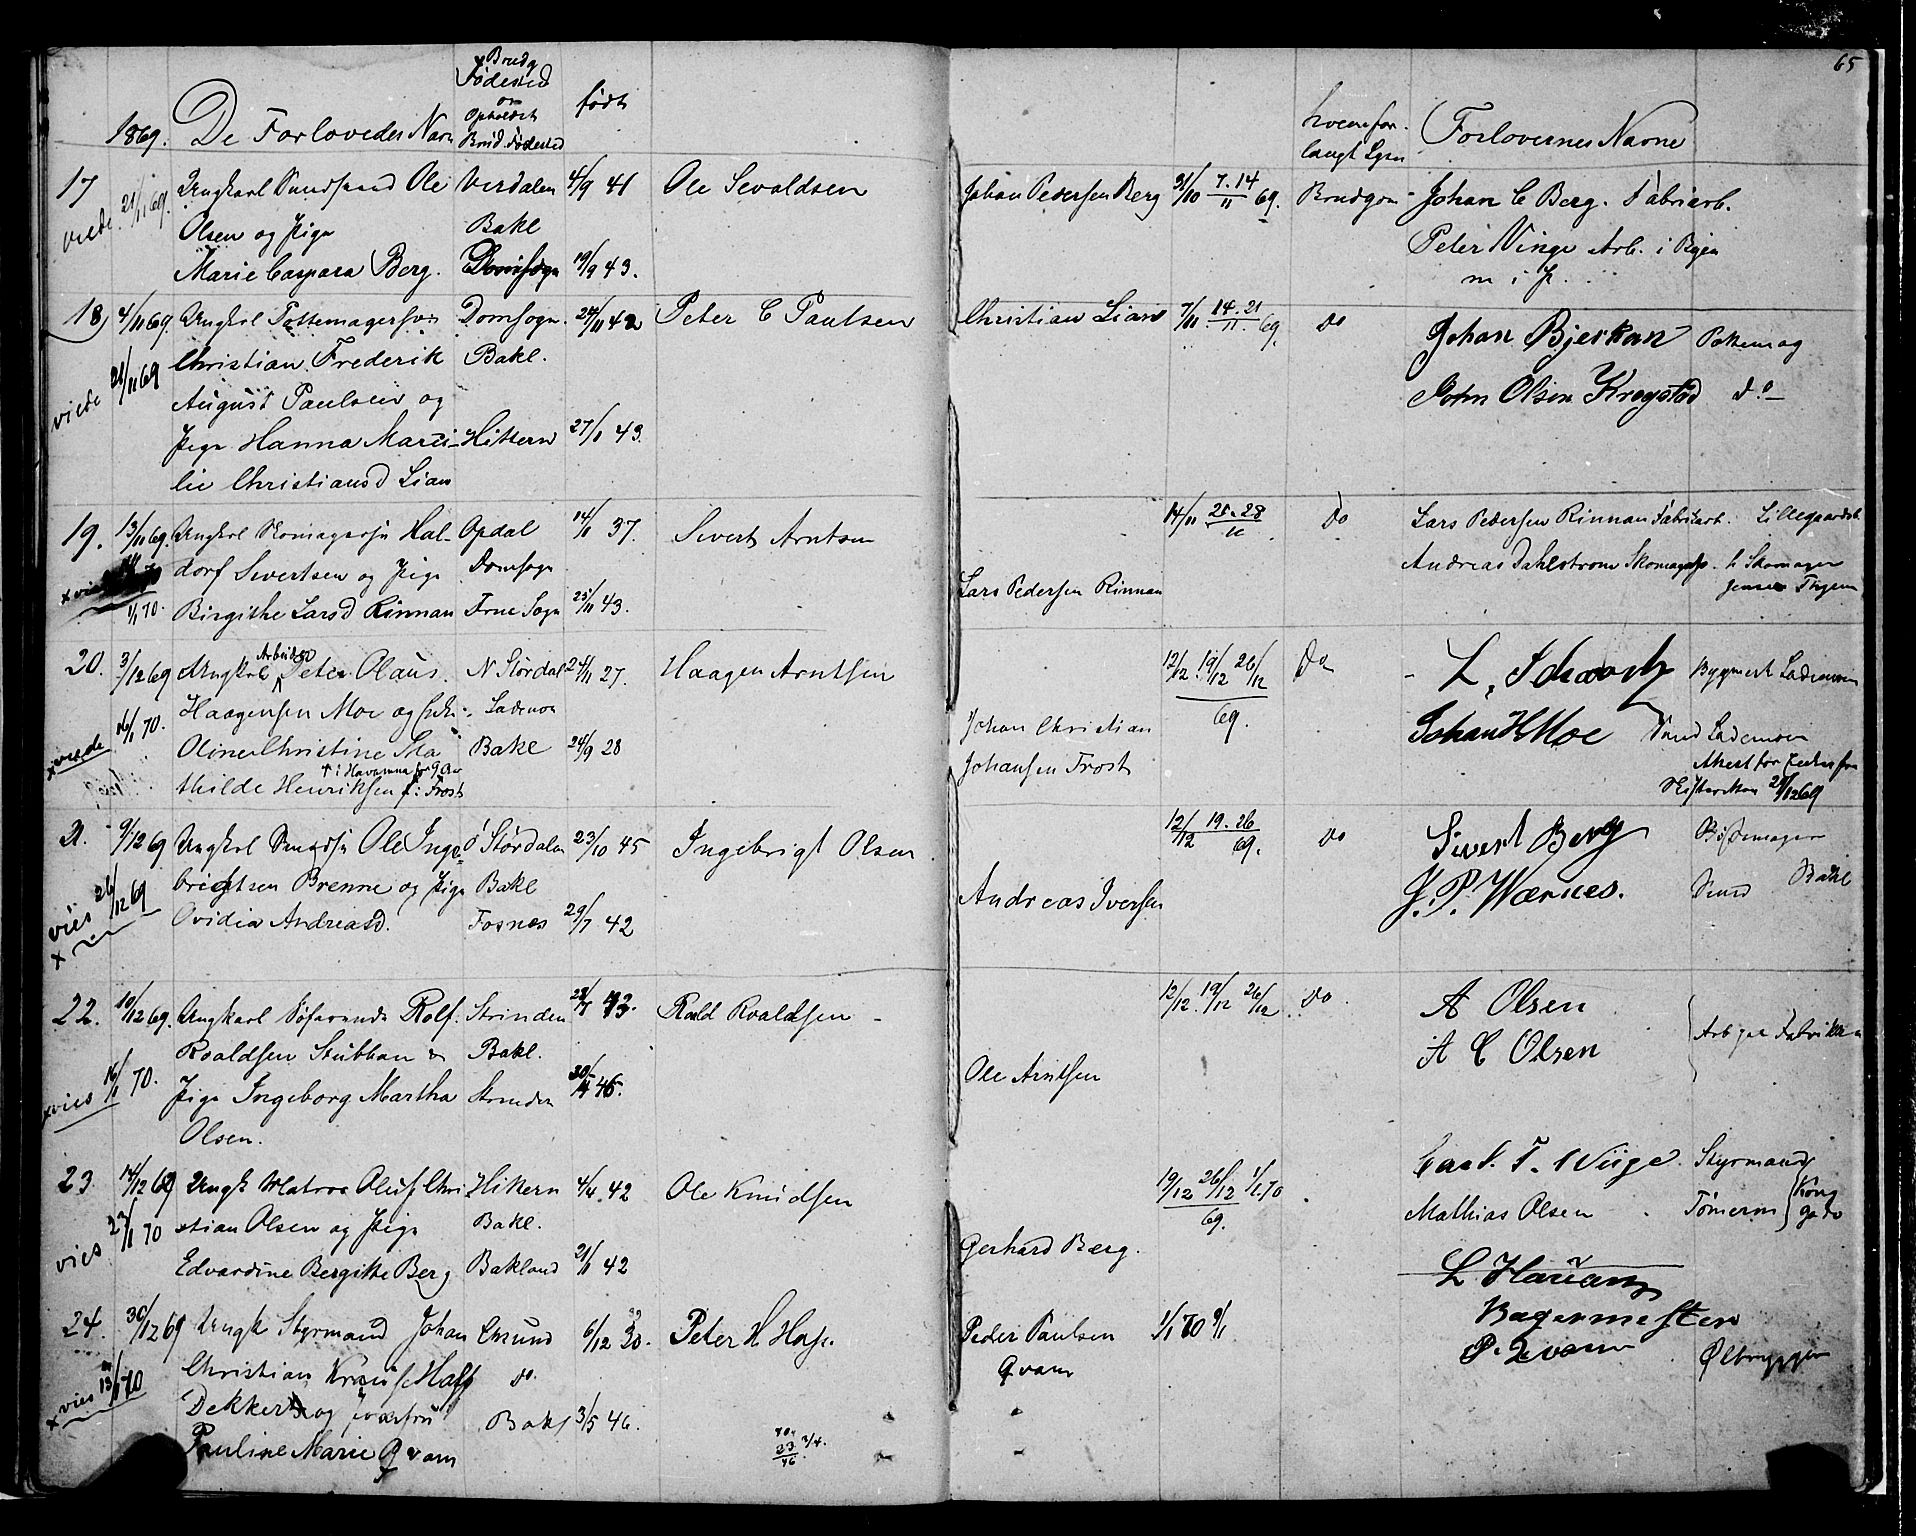 65
1869. De Forlovedes Navn Brudg Fødested og Opholdst Brud. Fødested født
hvem forlangt Lysn Forlovernes Navne
17 Ungkarl Ole Verdalen 4/9 41 Ole Sevaldsen Johan Pedersen Berg 31/10 7.14/11 69. Brudgom Johan C Berg. Fabriarb.
viede 21/11 69. Olsen og Pige Bakl Peter Vinge Arb. i Byen
Marie Caspara Berg. Domsogn 19/9 43. m i P.
18, 4/11 69. Ungkrl Pottemagersv Domsogn. 24/11 42 Peter C Paulsen Christian Lian 7/11 14.21/11 69. Do Johan Bjerkan Pottemag
viede 21/11 69 Christian Frederik Bakl.
August Paulsen og John Olsen Krogstad do
Pige Hanna Marci- Hittern 27/1 43.
lie Christiansd Lian
19. 13/11 69. Ungkrl Skomagersv Hal- Opdal 14/11 37. Sivert Arntsen 14/11 21.28/11 Do Lars Pedersen Rinnan Fabrikarb. Lillegaardsb.
dorf Sivertsen og Pige Domsogn Andreas Dahlstrom Skomagersv h Skomager
1/1 70 Birgithe Larsd Rinnan Frue Sogn 25/11 43. Lars Pedersen Rinnan Jensen Thgem
20. 3/12 69 Ungkrl Arbeider Peter Olaus. N Stördal 24/11 27. Haagen Arntsen 12/12. 19/12 26/12 69. Do L. Schwach Bygmest Lademoen
viede 16/1 70. Haagensen Moe og Enke Lademoe Johan Christian Johan H Moe Lademoen
Oline Christine Ma Bakl 24/9 28 Johansen Frost Attest for
† i Havanna for 9 Aar
thilde Henriksen f: Frost 28/12 69
21. 9/12 69 Ungkrl Ole Inge- Ö Stördalen 23/10 45 Ingebrigt Olsen 12/12 19.26/12 69. Do Sivert Berg Bössemager
vies 26/12 69 brigtsen Brenne og Pige Bakl Andreas Iversen J. P. Wærnes. Bakl
Ovidia Andreasd. Fosnæs 29/7 42
22. 10/12 69. Ungkarl Söfarende Rolf. Strinden 43. Roald Roaldsen 12/12. 19/12 26/12 Do. A Olsen
Roaldsen Stubban & Bakl. A C Olsen Arb paa Fabrikken
vies 16/1 70. Pige Ingeborg Martha Strinden 46. Ole Arntsen
Olsen.
23 14/12 69 Ungk Matros Oluf Chri Hittern 4/4 42 Ole Knudsen 19/12 26/12 1/1.70 69. Carl. F. Wiige Styrmand
vies 23/1 70 stian Olsen og Pige Bakl. Mathias Olsen Tömerm
Edvardine Bergitte Berg Bakland 21/11 42 Gerhard Bærg.
24. 30/12 69 Ungk Styrmand Johan Örsund 6/12 30. Peter H Hoff. Peder Paulsen Qvam 1/1 70 9/1 Bagermester
vies 13/1 70 Christian Hoff do. P. Qvam Ølbrygger
Dekker og Jomfru Bakl 3/5 46.
Pauline Marie Qvam